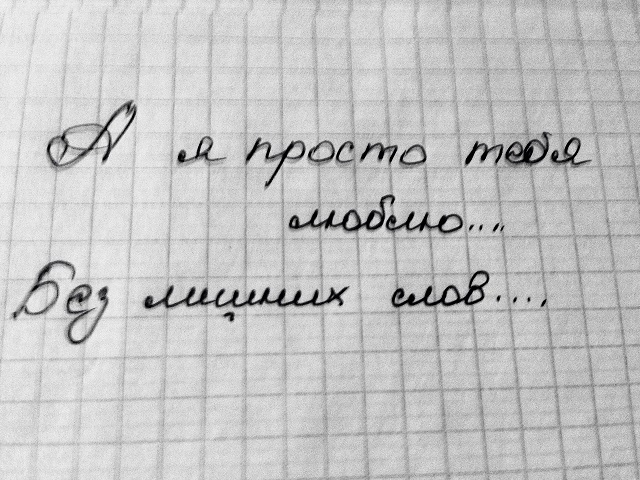 А я просто тебя
люблю....
Без лишних слов....